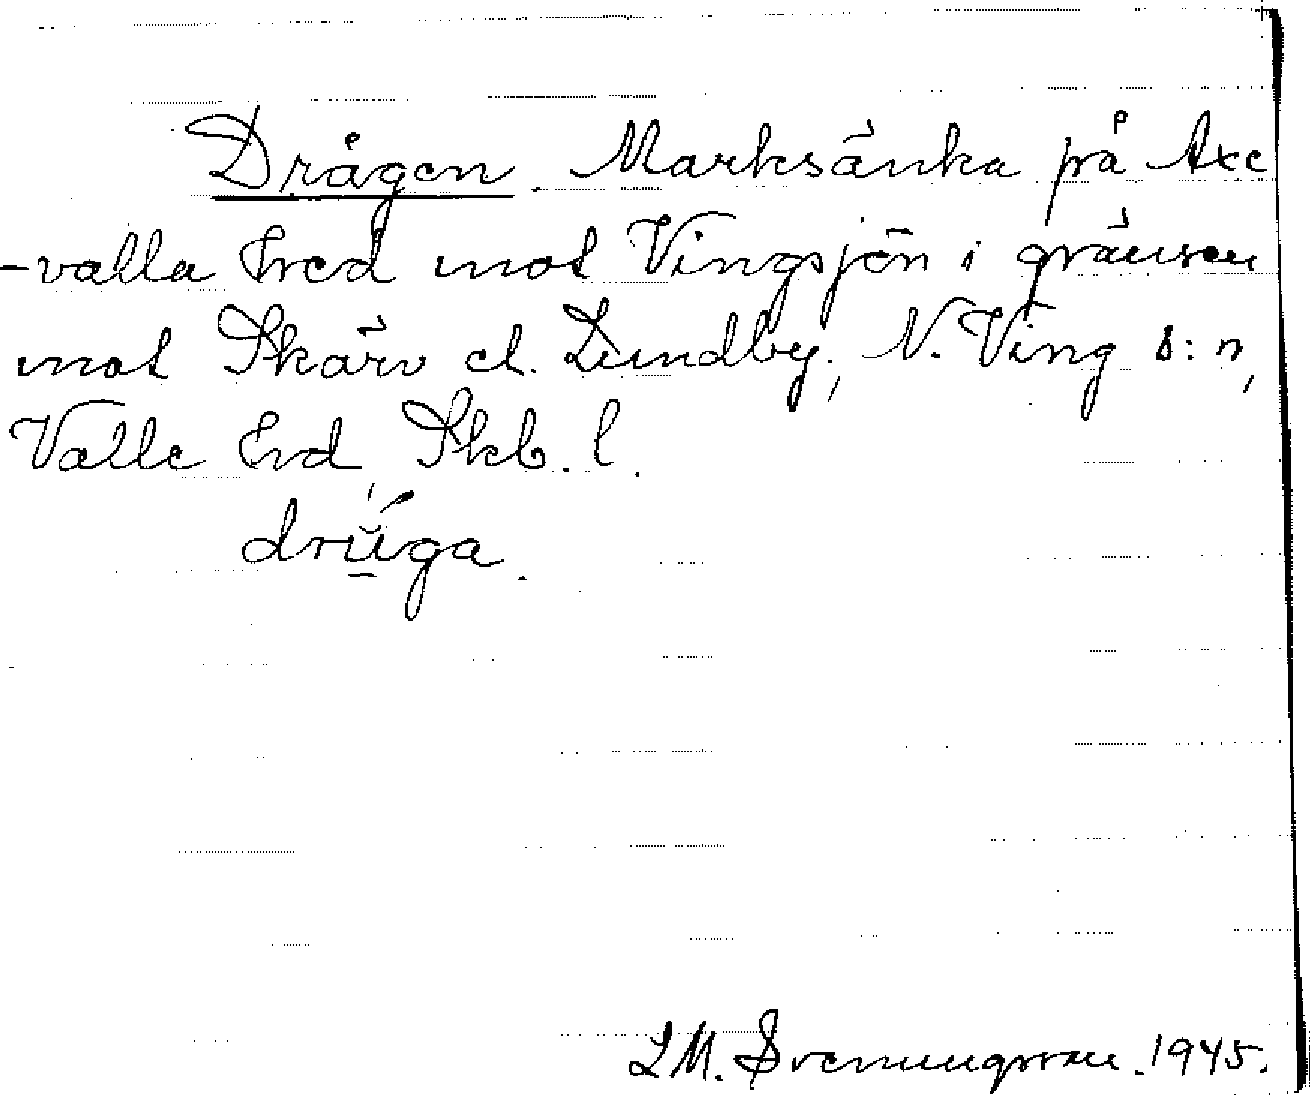 Drågen. Marksänka på Axe
-valla hed mot Vingsjön i gränsen
mot Skärv ch. Lundby, N. Ving s:n,
Valle hd, Skb. l.
drŭ́ga.
L M. Svenungsson. 1945.